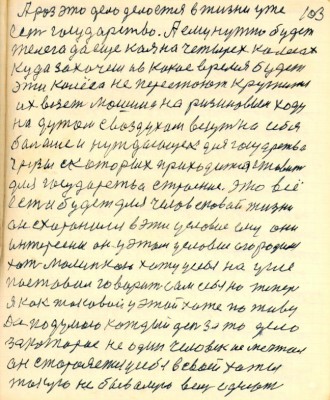 103
А раз это дело делается в жизни уже
есть государство. Ему нужно будет
телега да еще какая на четырех колесах
куда захочешь в какое время будет
эти колёса не перестают кружиться
их возят машина на резиновом ходу
на дутом с воздухом везут на себя
большие и нуждающих для государства
грузы с которых приходится ставить
для государства строение. Это всё
есть и будет для человека в жизни
он сохранился в эти условия ему они
интересны он у этом условии огородил
хоть маленькою хату уже на угле
поставил говорит сам себе но теперь
я как таковой у этой хате поживу
Да подумаю каждый день за то дело
за которое не один человек не мечтал
он старается у себя в своей хате
такую не бывалую вещь одну